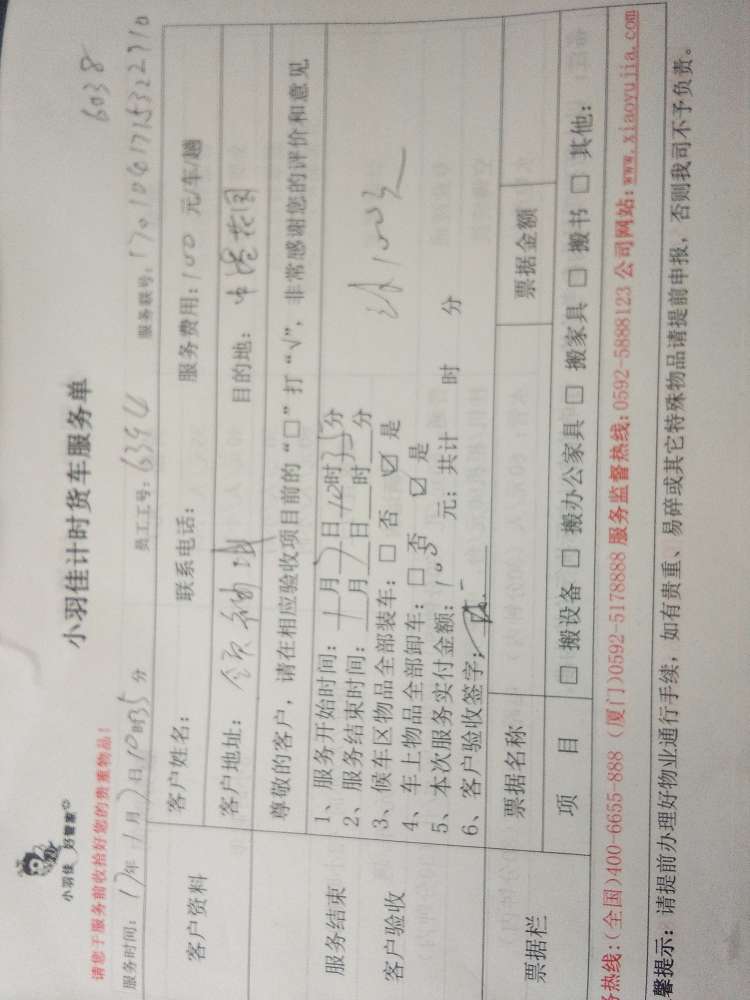 小羽佳 好管家
小羽佳计时货车服务单
6038
请您于服务前收拾好您的贵重物品!
服务时间: 17年 1月 7日 10时35分 员工工号: 6394 服务联号: 1701061715322710
客户资料
客户姓名: 联系电话: 服务费用: 100 元/车/趟
客户地址: 领袖城 目的地: 中港花园
尊敬的客户, 请在相应验收项目前的“□”打“√”, 非常感谢您的评价和意见
服务结束
客户验收
1、服务开始时间: 1月7日10时35分
2、服务结束时间: 1月7日 时 分
3、候车区物品全部装车: □ 否 ☑ 是
4、车上物品全部卸车: □ 否 ☑ 是
5、本次服务实付金额: 100 元; 共计 时 分
6、客户验收签字:
100元
票据栏
票据名称 票据金额
项 目 □ 搬设备 □ 搬办公家具 □ 搬家具 □ 搬书 □ 其他:
务热线: (全国)400-6655-888 (厦门)0592-5178888 服务监督热线: 0592-5888123 公司网站: www.xiaoyujia.com
馨提示: 请提前办理好物业通行手续, 如有贵重、易碎或其它特殊物品请提前申报, 否则我司不予负责。